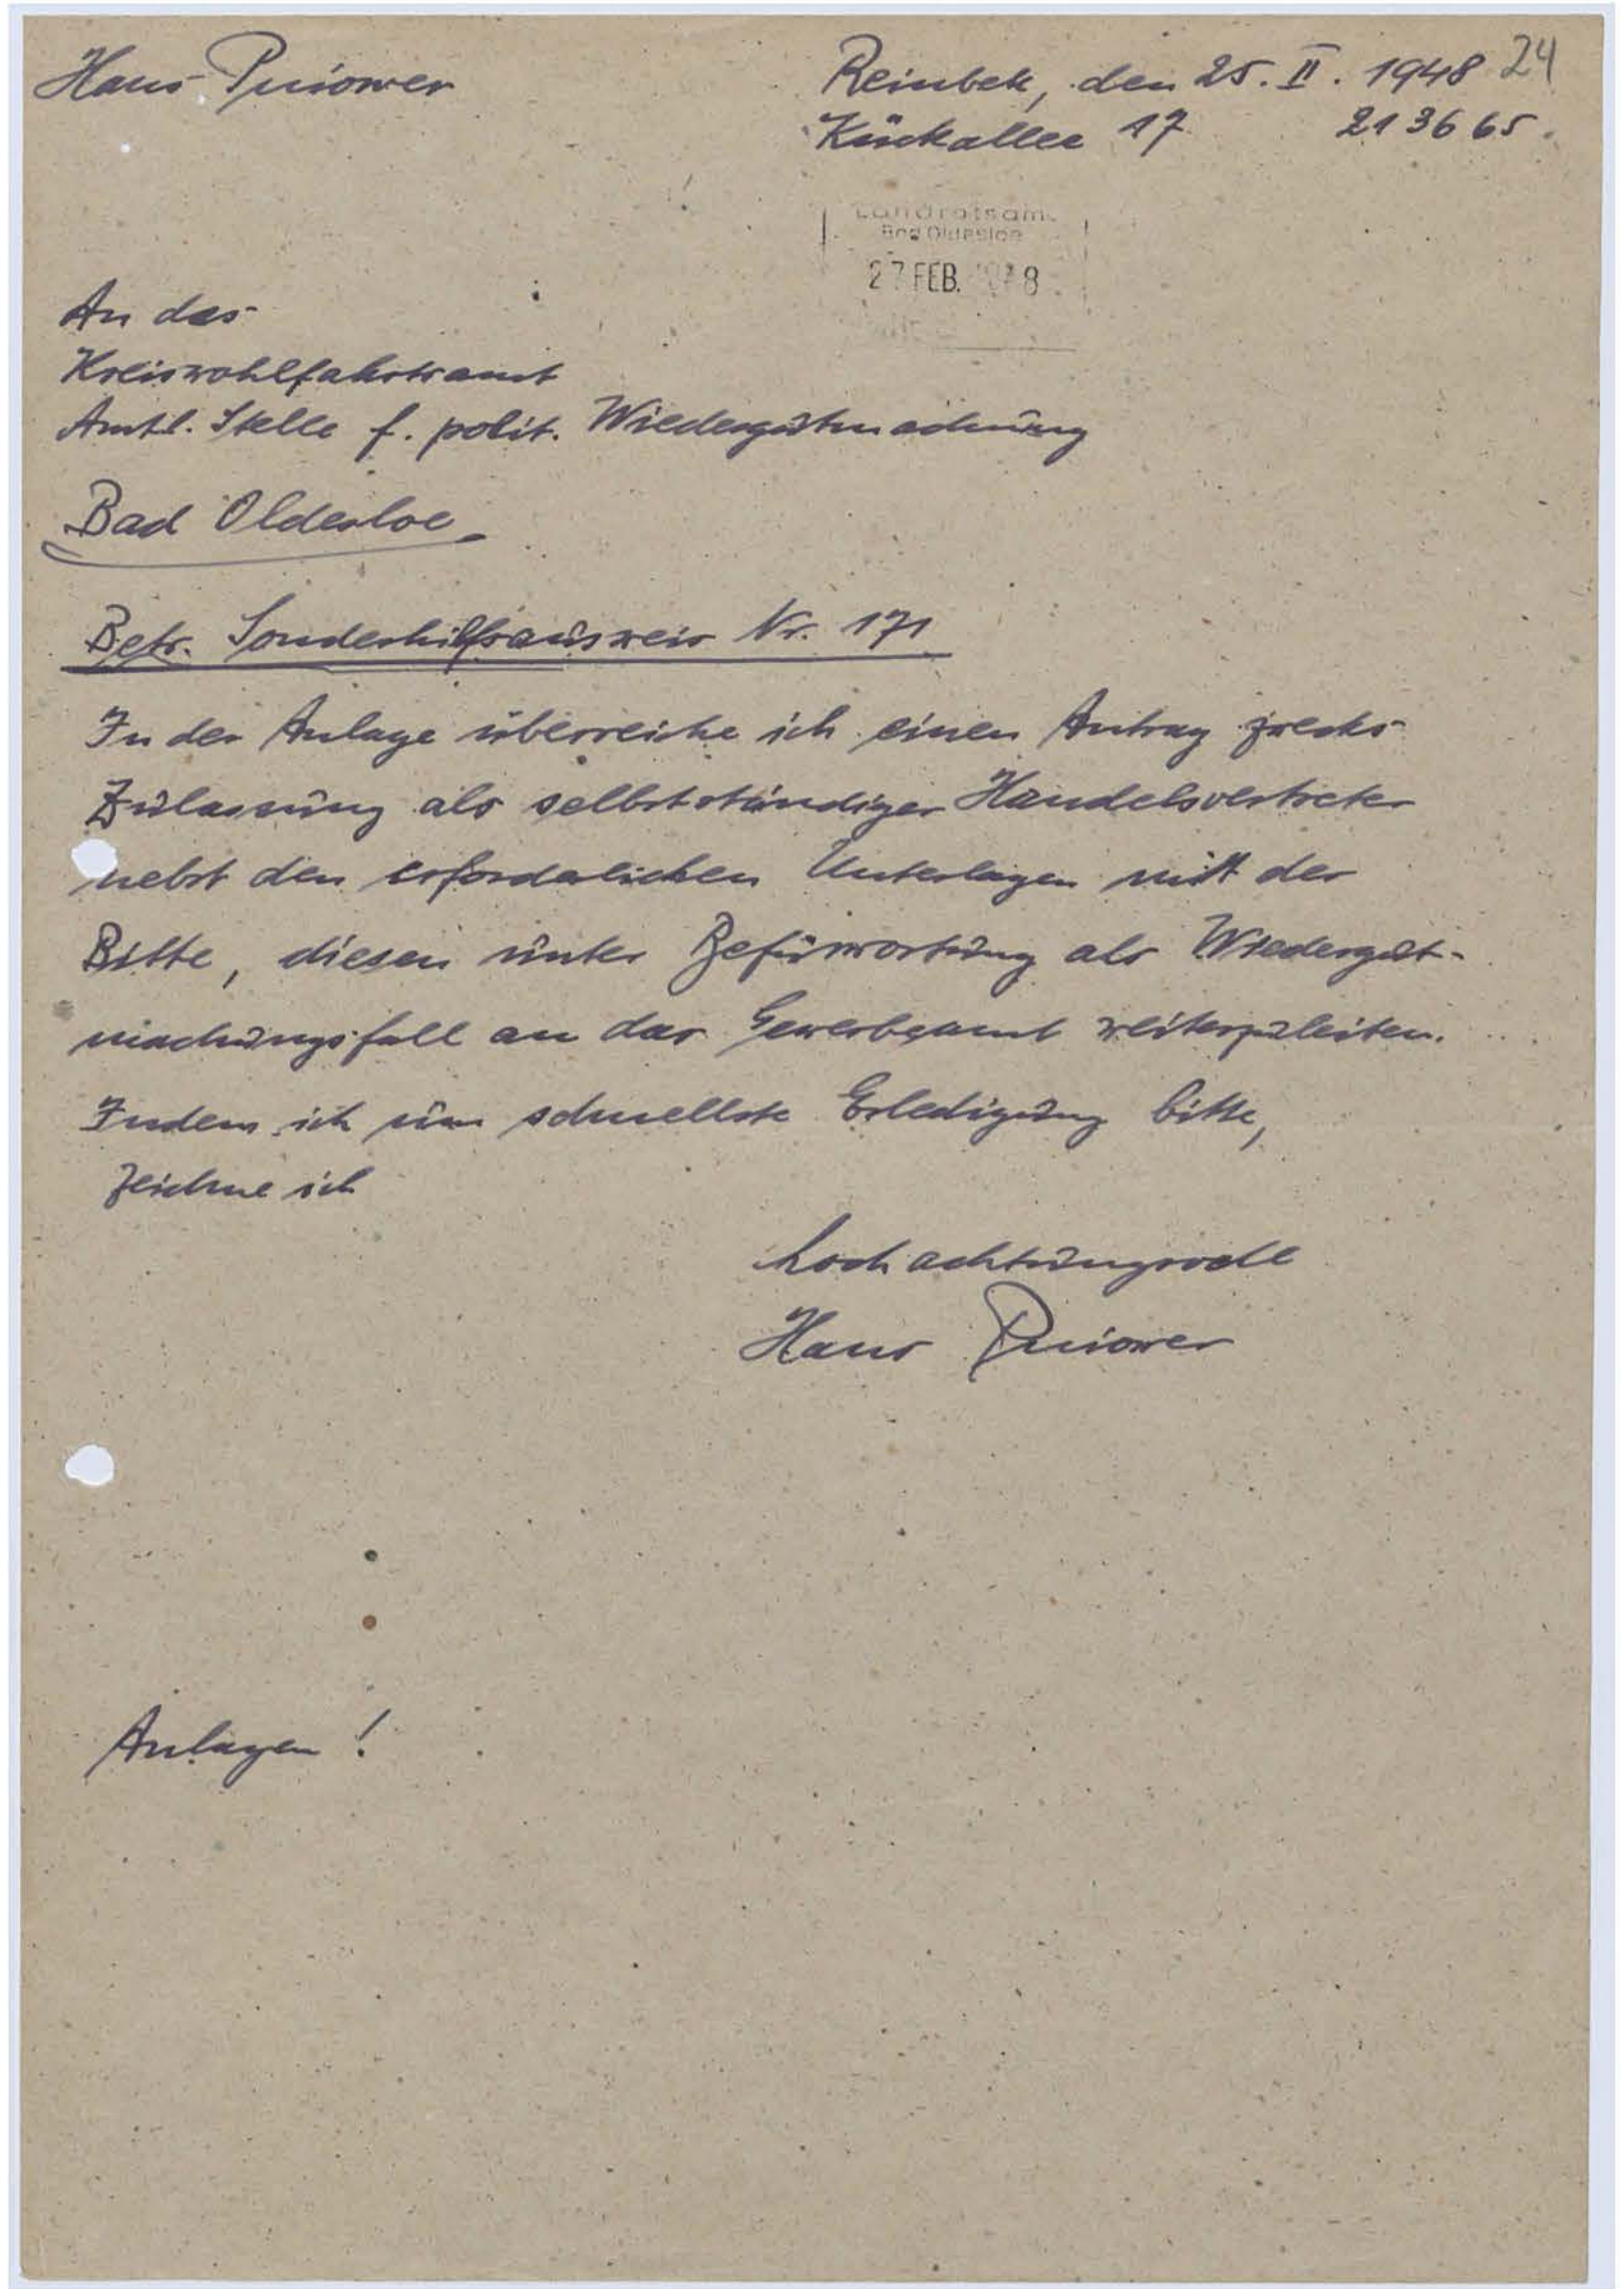 Hans Pniower
Reinbek, den 25. II. 1948 24
Kückallee 17 213665.
Landratsamt
Bad Oldesloe
27 FEB. 1948
An das
Kreiswohlfahrtsamt
Amtl. Stelle f. polit. Wiedergutmachung
Bad Oldesloe
Betr. Sonderhilfsausweis Nr. 171
In der Anlage überreiche ich einen Antrag zwecks
Zulassung als selbstständiger Handelsvertreter
nebst den erforderlichen Unterlagen mit der
Bitte, diesen unter Befürwortung als Wiedergut-
machungsfall an das Gewerbeamt weiterzuleiten.
Indem ich um schnellste Erledigung bitte,
zeichne ich
hochachtungsvoll
Hans Pniower
Anlagen !